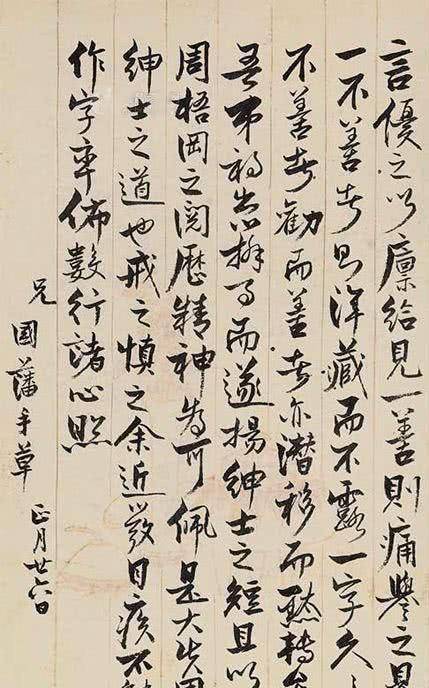 言優之以廩給見一善則痛譽之見
一不善者則渾藏而不露一字久
不善者勸而善者亦潛移而默轉
吾弟初出辦事而遂揚紳士之短且以
周梧岡之閱歷精神為可佩是大失用
紳士之道也戒之慎之余近發目疾不
作字率佈數行諸心照
兄國藩手草
正月廿六日